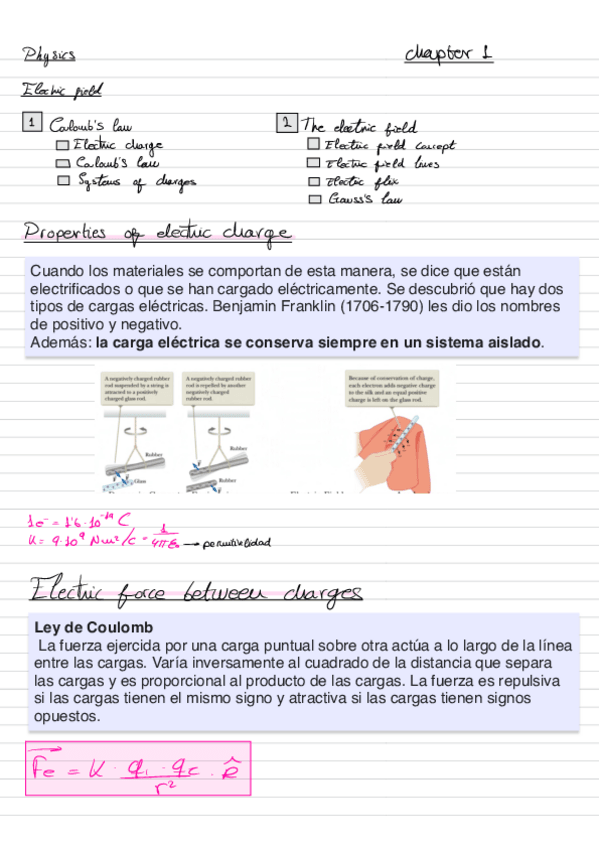 Physics chapter 1
Electric field
1 Coulomb's law
Electric charge
Coulomb's law
Systems of charges
2 The electric field
Electric field concept
Electric field lines
Electric flux
Gauss's law
Properties of electric charge
Cuando los materiales se comportan de esta manera, se dice que están
electrificados o que se han cargado eléctricamente. Se descubrió que hay dos
tipos de cargas eléctricas. Benjamin Franklin (1706-1790) les dio los nombres
de positivo y negativo.
Además: la carga eléctrica se conserva siempre en un sistema aislado.
A negatively charged rubber
rod suspended by a string is
attracted to a positively
charged glass rod.
A negatively charged rubber
rod is repelled by another
negatively charged
rubber rod.
Because of conservation of charge,
each electron adds negative charge
to the silk and an equal positive
charge is left on the glass rod.
Rubber
Glass
Rubber
Rubber
1e⁻ = 1'6·10⁻¹⁹ C
K = 9·10⁹ Nm²/C = 1/4πε₀ → permitividad
Electric force between charges
Ley de Coulomb
La fuerza ejercida por una carga puntual sobre otra actúa a lo largo de la línea
entre las cargas. Varía inversamente al cuadrado de la distancia que separa
las cargas y es proporcional al producto de las cargas. La fuerza es repulsiva
si las cargas tienen el mismo signo y atractiva si las cargas tienen signos
opuestos.